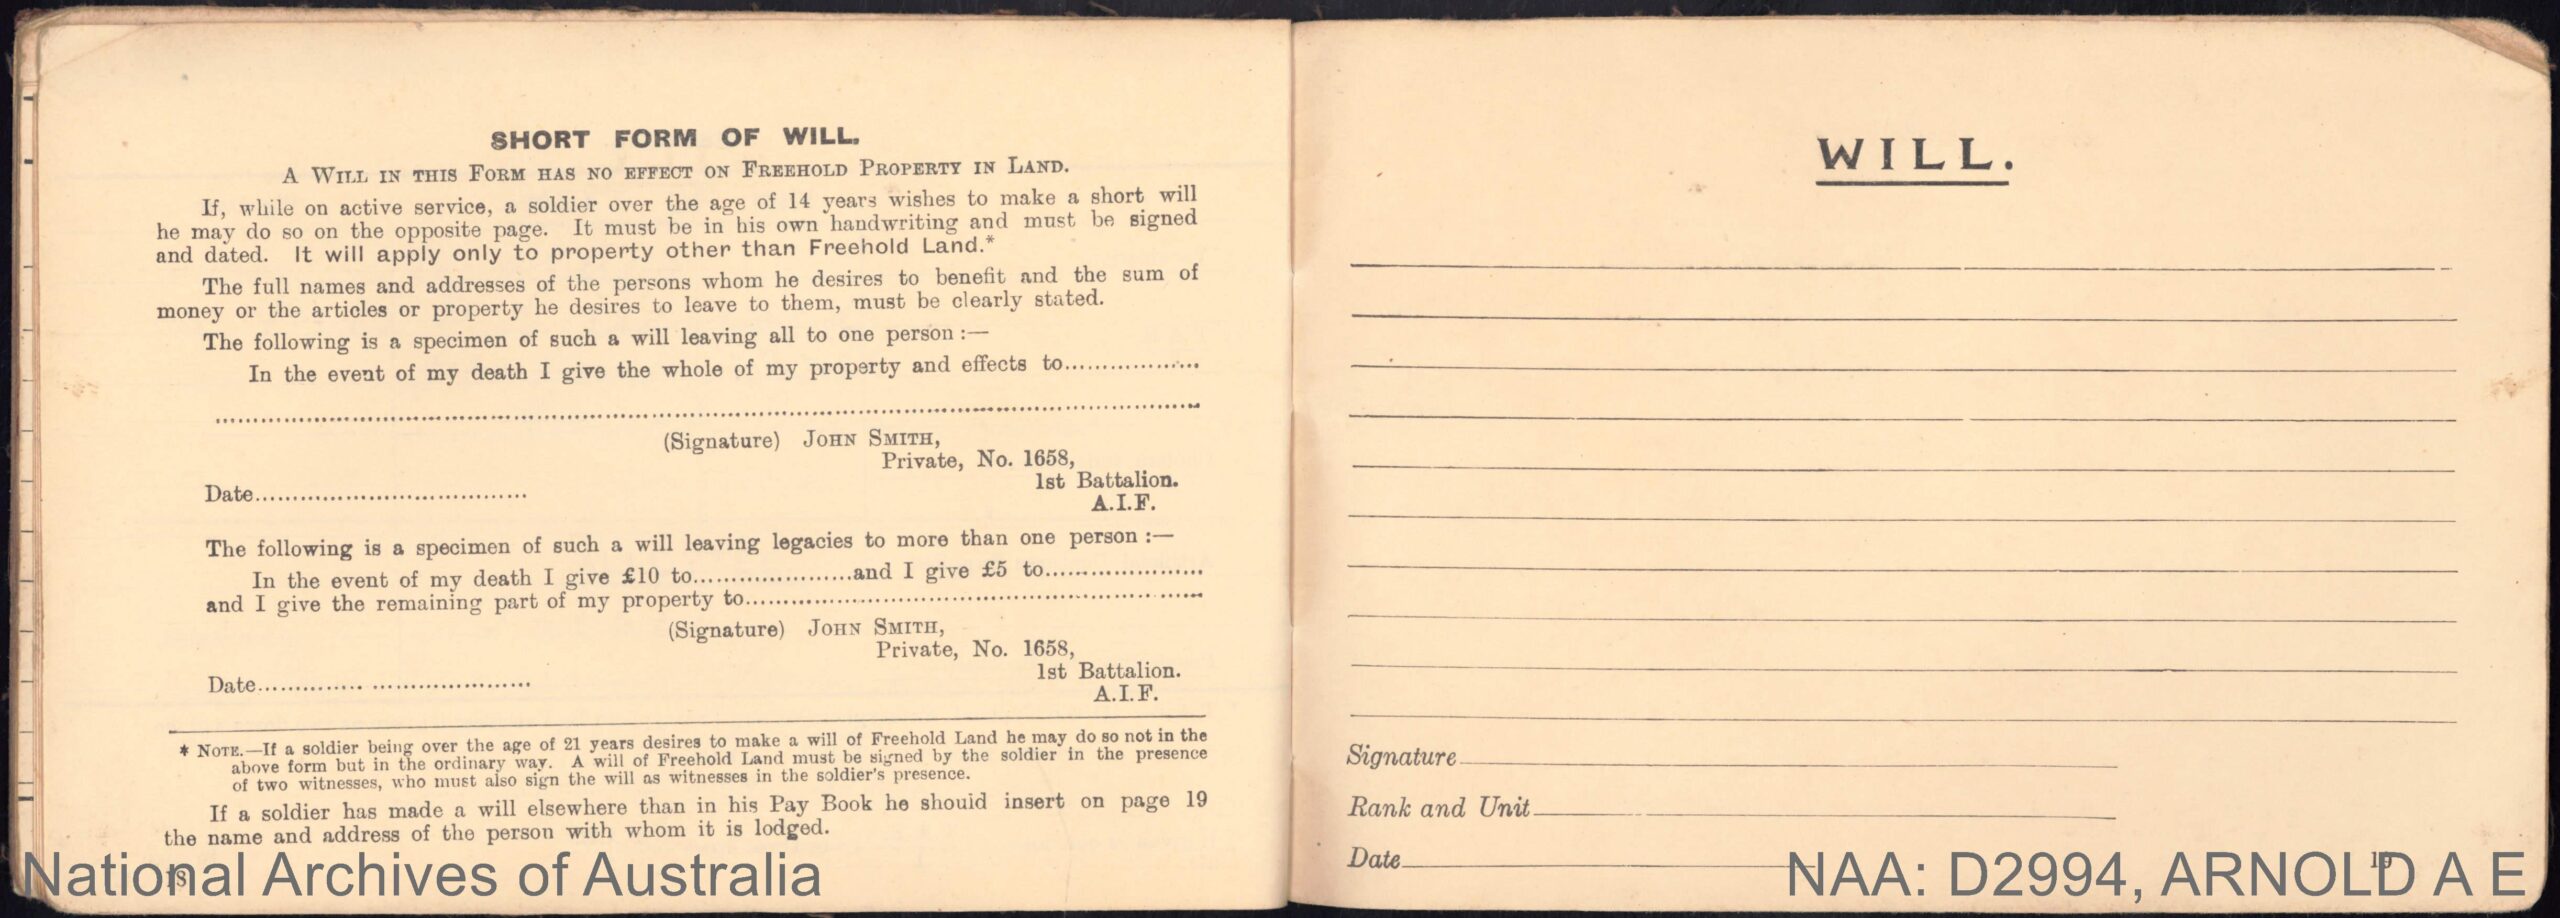 SHORT FORM OF WILL.
A WILL IN THIS FORM HAS NO EFFECT ON FREEHOLD PROPERTY IN LAND.
If, while on active service, a soldier over the age of 14 years wishes to make a short will
he may do so on the opposite page. It must be in his own handwriting and must be signed
and dated. It will apply only to property other than Freehold Land.*
The full names and addresses of the persons whom he desires to benefit and the sum of
money or the articles or property he desires to leave to them, must be clearly stated.
The following is a specimen of such a will leaving all to one person :—
In the event of my death I give the whole of my property and effects to..................
(Signature) JOHN SMITH,
Private, No. 1658,
1st Battalion.
Date....................................
A.I.F.
The following is a specimen of such a will leaving legacies to more than one person :—
In the event of my death I give £10 to......................and I give £5 to......................
and I give the remaining part of my property to..............................................................
(Signature) JOHN SMITH,
Private, No. 1658,
1st Battalion.
Date....................................
A.I.F.
* NOTE.—If a soldier being over the age of 21 years desires to make a will of Freehold Land he may do so not in the
above form but in the ordinary way. A will of Freehold Land must be signed by the soldier in the presence
of two witnesses, who must also sign the will as witnesses in the soldier's presence.
If a soldier has made a will elsewhere than in his Pay Book he should insert on page 19
the name and address of the person with whom it is lodged.
18
National Archives of Australia
WILL.
Signature
Rank and Unit
Date
19
NAA: D2994, ARNOLD A E